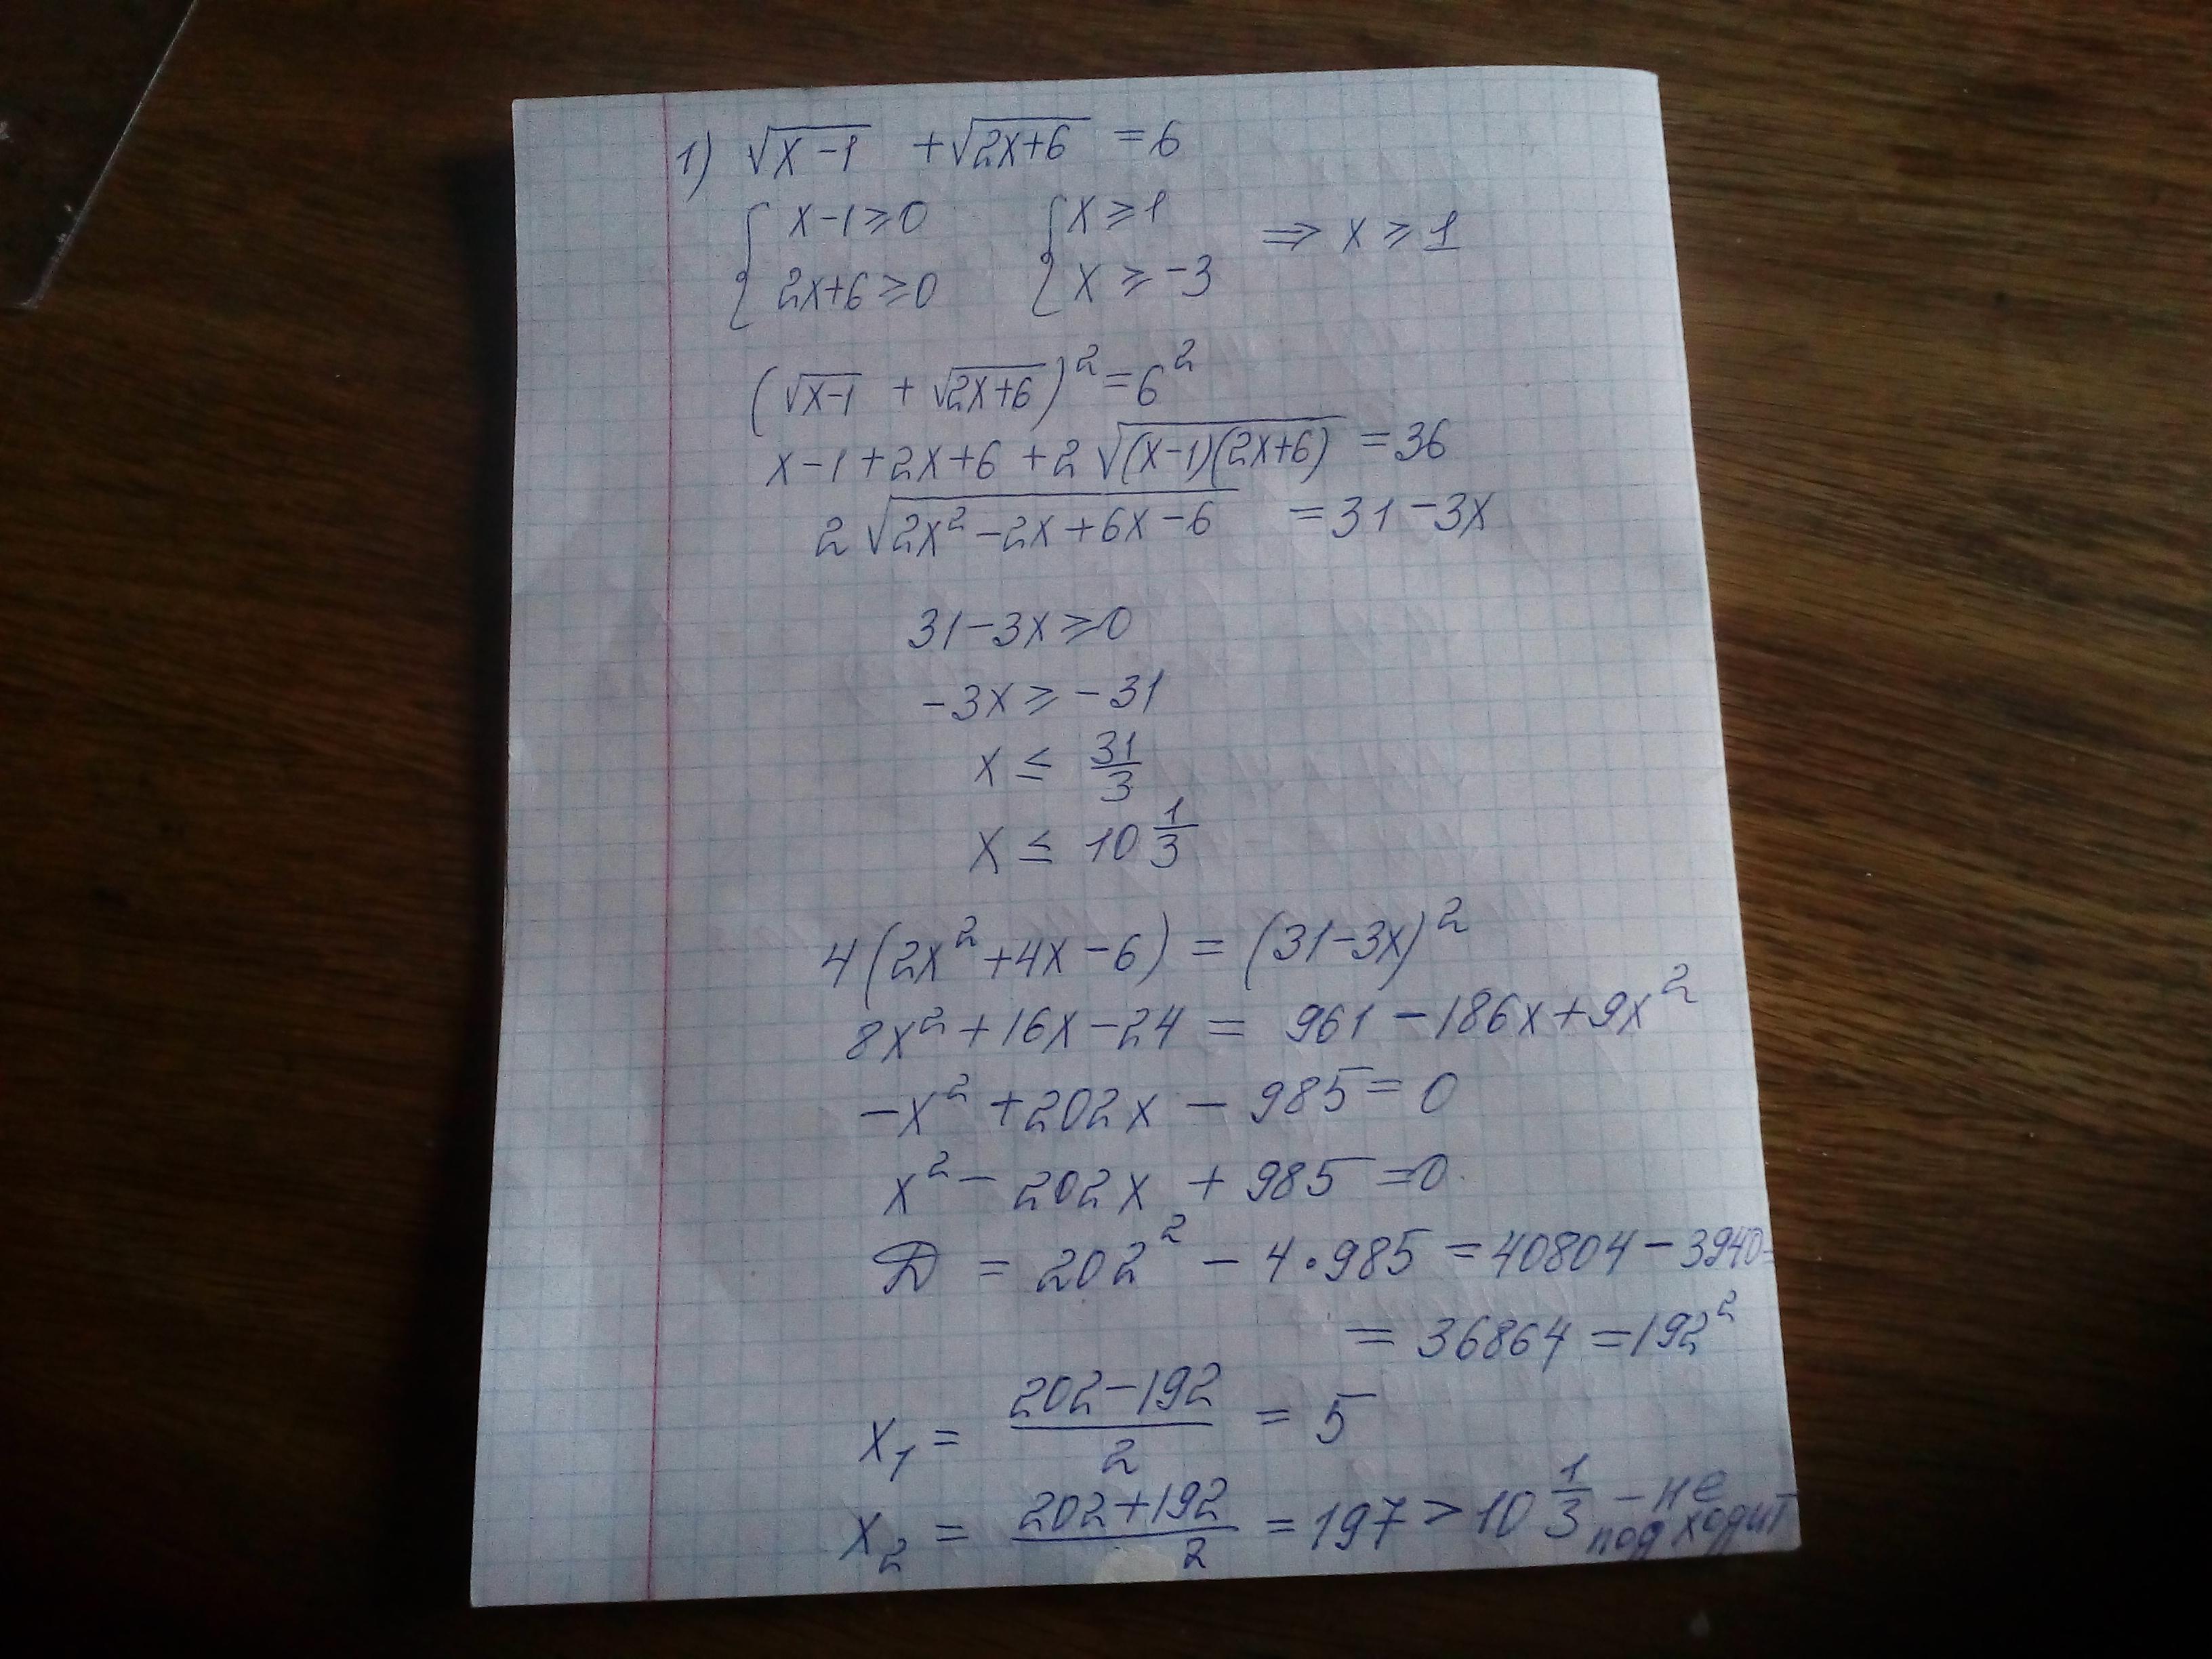 1) √(x-1) + √(2x+6) = 6
{ x-1≥0 { x≥1 ⇒ x≥1
{ 2x+6≥0 { x≥-3
(√(x-1) + √(2x+6))² = 6²
x-1+2x+6+2√((x-1)(2x+6)) = 36
2√(2x²-2x+6x-6) = 31-3x
31-3x≥0
-3x≥-31
x ≤ 31/3
x ≤ 10 1/3
4(2x²+4x-6) = (31-3x)²
8x²+16x-24 = 961-186x+9x²
-x²+202x-985=0
x²-202x+985=0
D = 202² - 4•985 = 40804-3940=
= 36864 = 192²
x₁ = (202-192)/2 = 5
x₂ = (202+192)/2 = 197 > 10 1/3 - не подходит